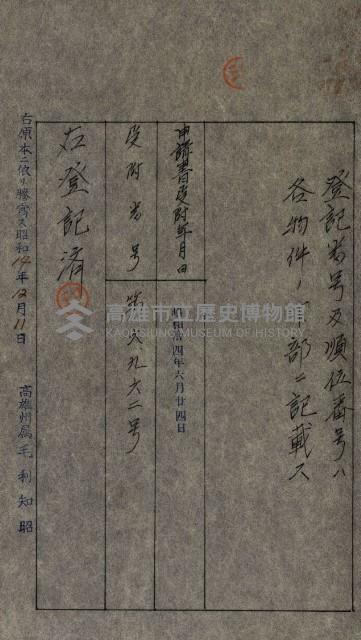 登記番号及順位番号ハ
各物件ノ一部ニ記載ス
申請書受附年月日
昭和拾四年六月廿四日
受附番号
第八、九六二号
右登記済
右原本ニ依リ謄寫ス昭和14年12月11日
高雄州属 毛利知昭
高雄市立歷史博物館
KAOHSIUNG MUSEUM OF HISTORY